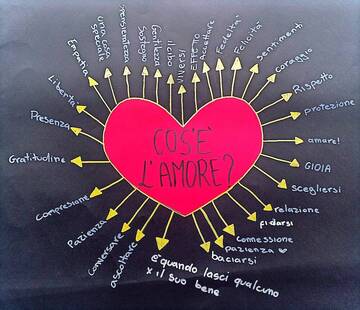 COS'E'
L'AMORE?
Gratitudine
Presenza
Libertà
Empatia
una cosa
speciale
Spensieratezza
Sostegno
Gentilezza
il cibo
Diversi
EFFETTO
Accettare
Fedeltà
Felicità
sentimenti
coraggio
Rispetto
protezione
amare!
GIOIA
scegliersi
relazione
fidarsi
connessione
pazienza
baciarsi
è quando lasci qualcuno
x il suo bene
ascoltare
conversare
Pazienza
Compresione